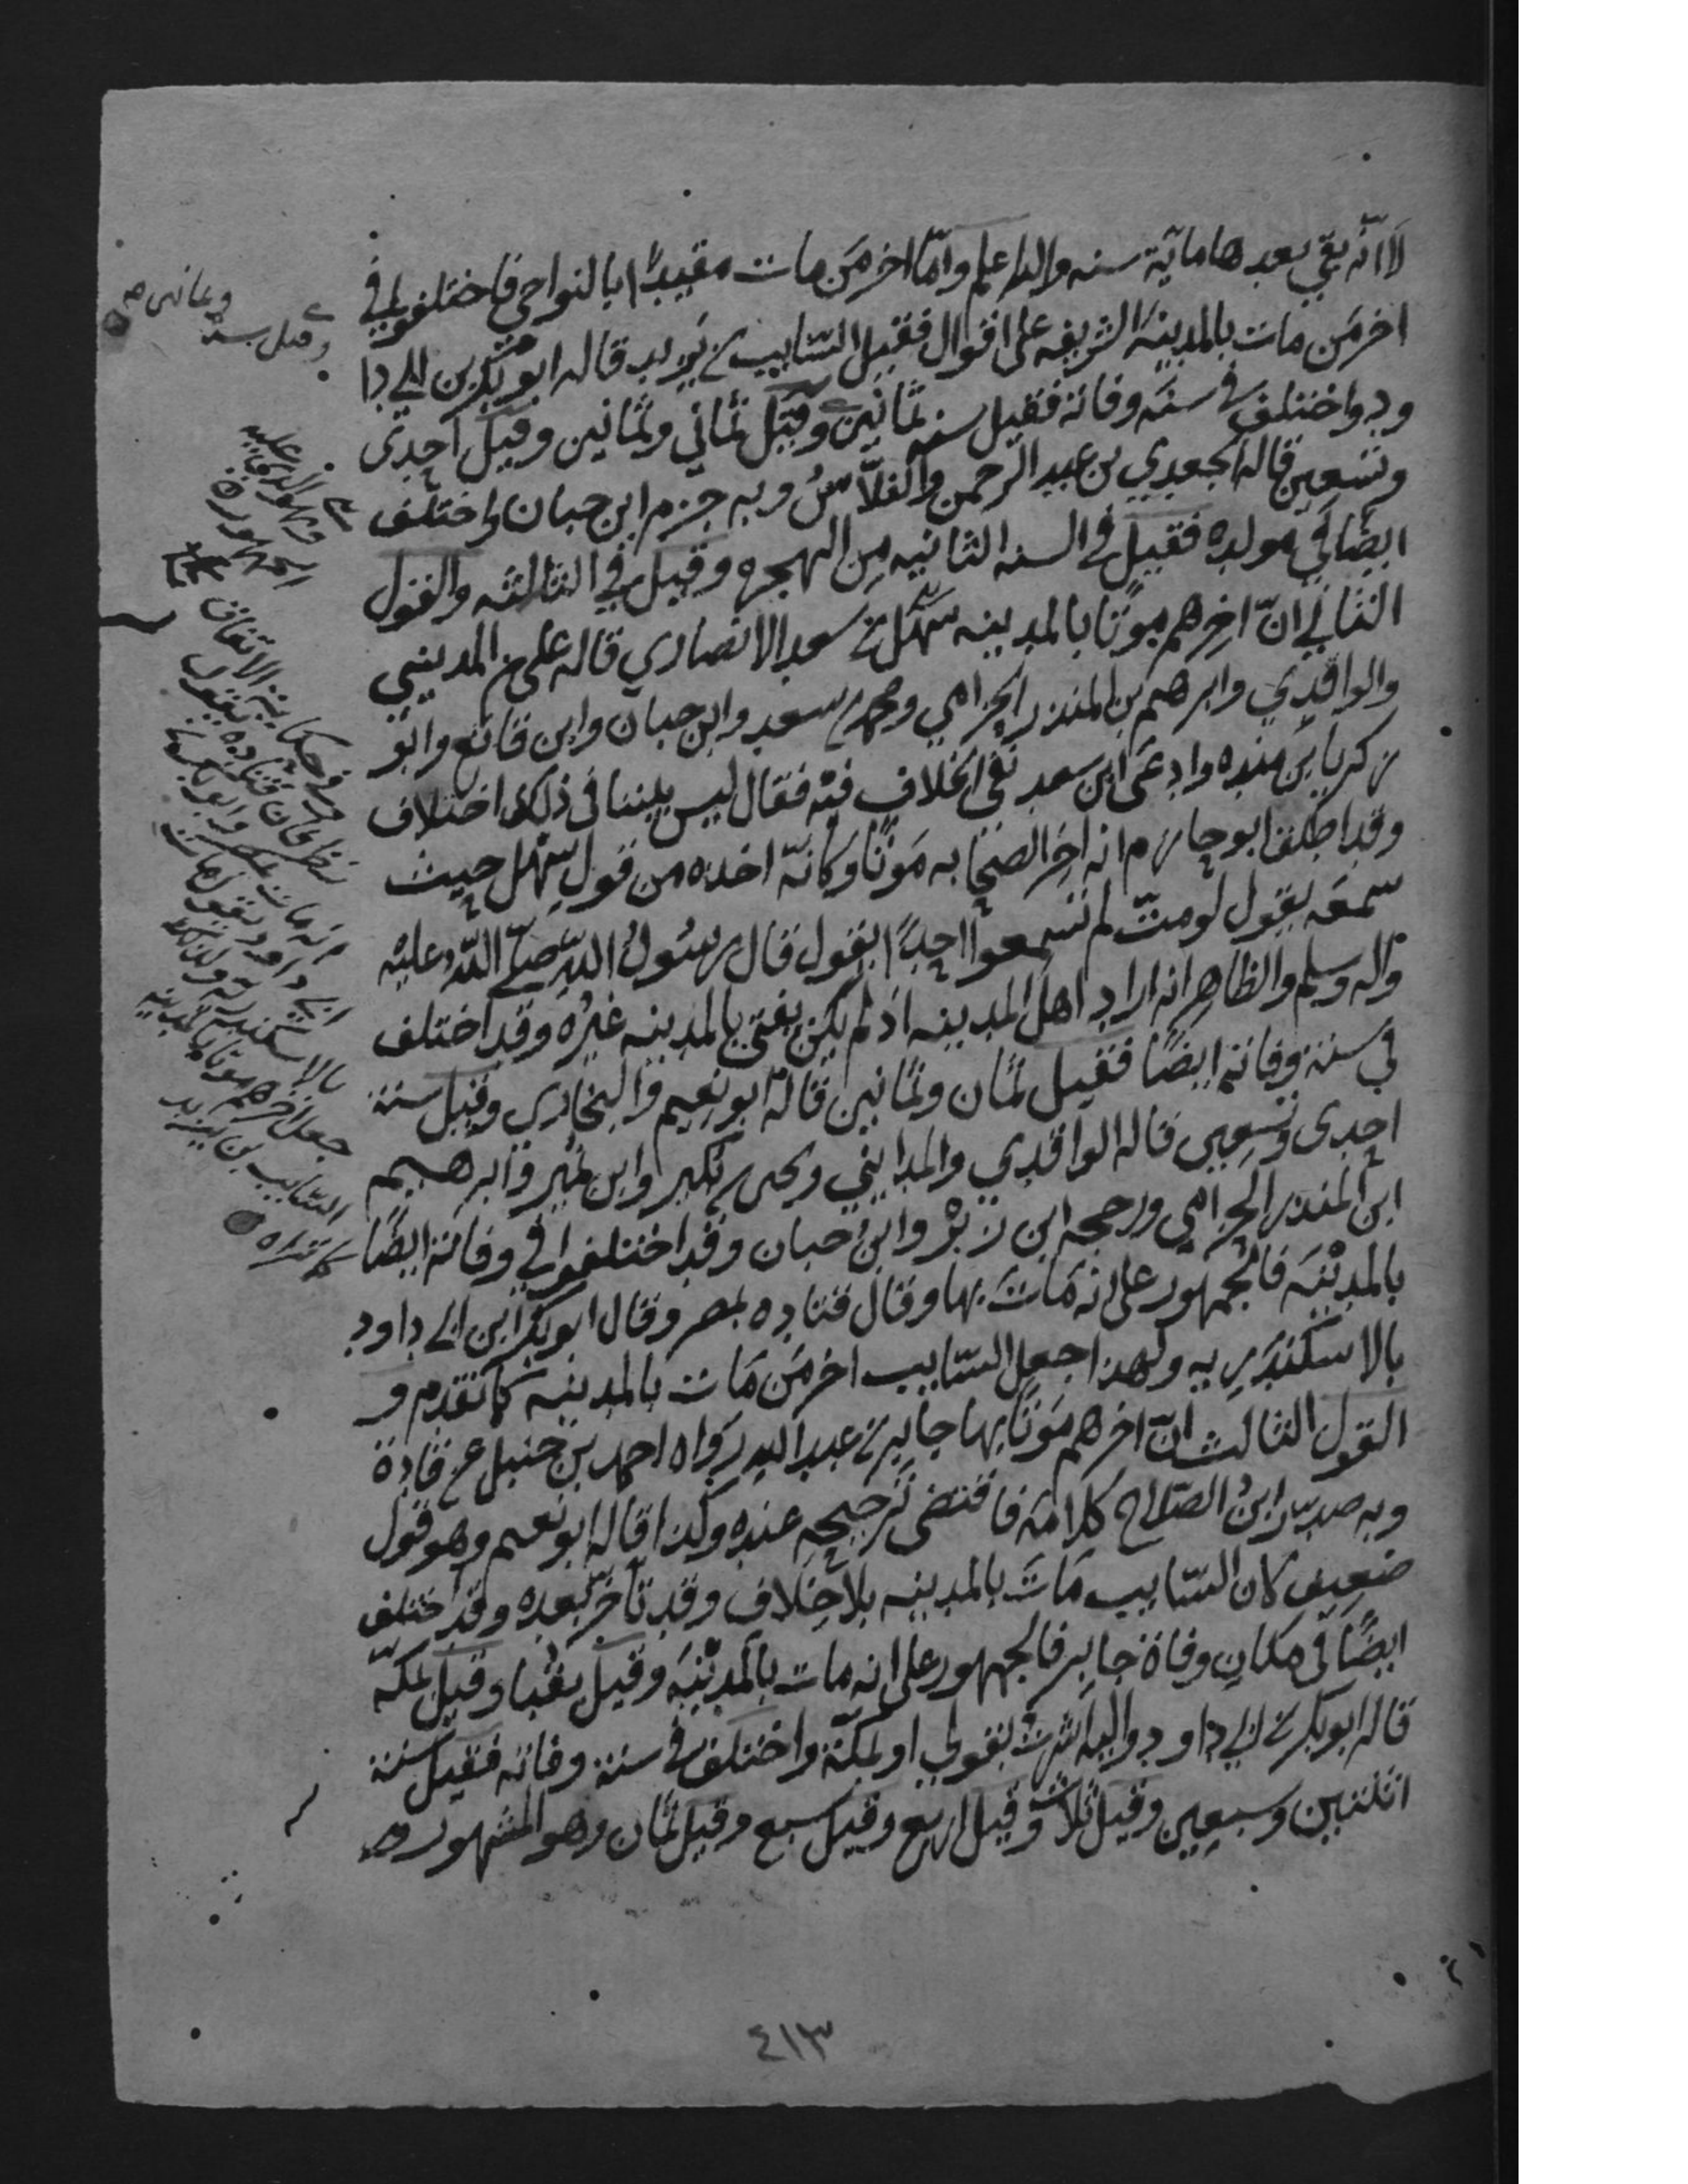 لا انه بقي بعدها ماية سنه والله اعلم وامّا اخر من مات مقيدًا بالنواحي فاختلفوا في
اخر من مات بالمدينه الشريفه على اقوال فقيل السّايب بن يزيد قاله ابو بكر بن ابي دا
ود واختلف في سنه وفاته فقيل سنه ثمانين وقيل ثماني وثمانين وقيل احدى
وتسعين قاله الجعدي بن عبد الرحمن والفلاّس وبه جزم ابن حبان واختلف
ايضًا في مولده فقيل في السنه الثانيه من الهجره وقيل في الثالثه والقول
الثاني انّ اخرهم موتًا بالمدينه سهل بن سعد الانصاري قاله علي بن المديني
والواقدي وابرهم بن المنذر الحزامي ومحمد بن سعد وابن حبان وابن قانع وابو
زكريا بن منده وادعى ابن سعد نفي الخلاف فيه فقال ليس بيننا في ذلك اختلاف
وقد اطلق ابو حازم انه اخر الصحابه موتًا وكانّه اخذه من قول سهل حيث
سمعه يقول لو متّ لم تسمعوا احدًا يقول قال رسول الله صلى الله عليه
واله وسلم والظاهر انه اراد اهل المدينه اذ لم يكن بقي بالمدينه غيره وقد اختلف
في سنة وفاته ايضًا فقيل ثمان وثمانين قاله ابو نعيم والبخاري وقيل سنة
احدى وتسعين قاله الواقدي والمدايني ويحيى بن بكير وابن نمير وابرهيم
ابن المنذر الحزامي ورجحه ابن زبر وابن حبان وقد اختلفوا في وفاته ايضًا
بالمدينه فالجمهور على انه مات بها وقال قتاده بمصر وقال ابو بكر ابن ابي داود
بالاسكندريه ولهذا جعل السّايب اخر من مات بالمدينه كما تقدم و
القول الثالث انّ اخرهم موتًا بها جابر بن عبد الله رواه احمد بن حنبل عن قتادة
وبه صدّر ابن الصّلاح كلامه فاقتضى ترجيحه عنده وكذا قاله ابو نعيم وهو قول
ضعيف كان السّايب مات بالمدينه بلا خلاف وقد تاخر بعده وقد اختلف
ايضًا في مكان وفاة جابر فالجمهور على انه مات بالمدينه وقيل بقبا وقيل بمكّه
قاله ابو بكر بن ابي داود واليه اشرت بقولي او بمكّة واختلف في سنة وفاته فقيل سنة
اثنتين وسبعين وقيل ثلاث وقيل اربع وقيل سبع وقيل ثمان وهو المشهور
وقيل سنة وثمانين
وهو الذي عليه
الجمهور
في حكاية الاتفاق
نظر فان قتاده يقول
انه مات بمصر وابو بكر بن
ابي داود يقول مات
بالاسكندريه ولذلك
جعل اخرهم موتا بالمدينه
السّايب بن يزيد
كما تراه
٤١٣